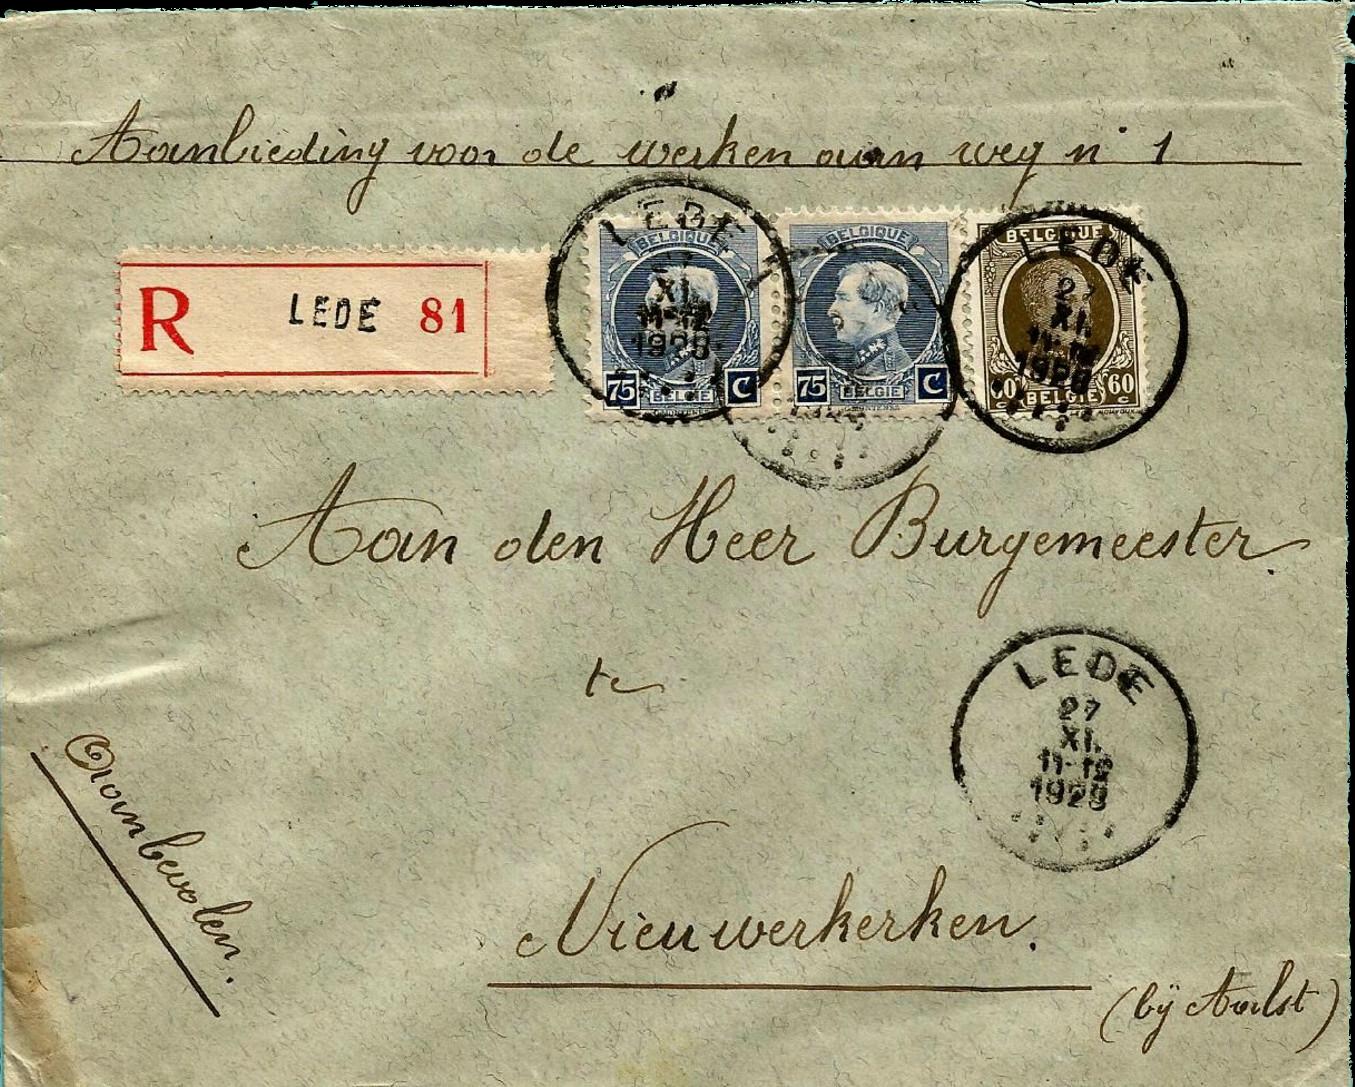 Aanbieding voor de werken aan weg n° 1
R LEDE 81
LEDE
XI.
11-12
BELGIQUE
75 BELGIE C
BELGIQUE
75 BELGIE C
LEDE
XI.
BELGIQUE
60 BELGIE 60
C C
Aan den Heer Burgemeester.
te
LEDE
27
XI.
11-12
1929
Aanbevolen.
Nieuwerkerken.
(bij Aalst)